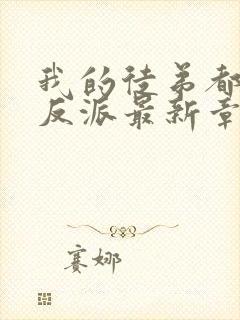 我的徒弟都
反派最新章
赛娜